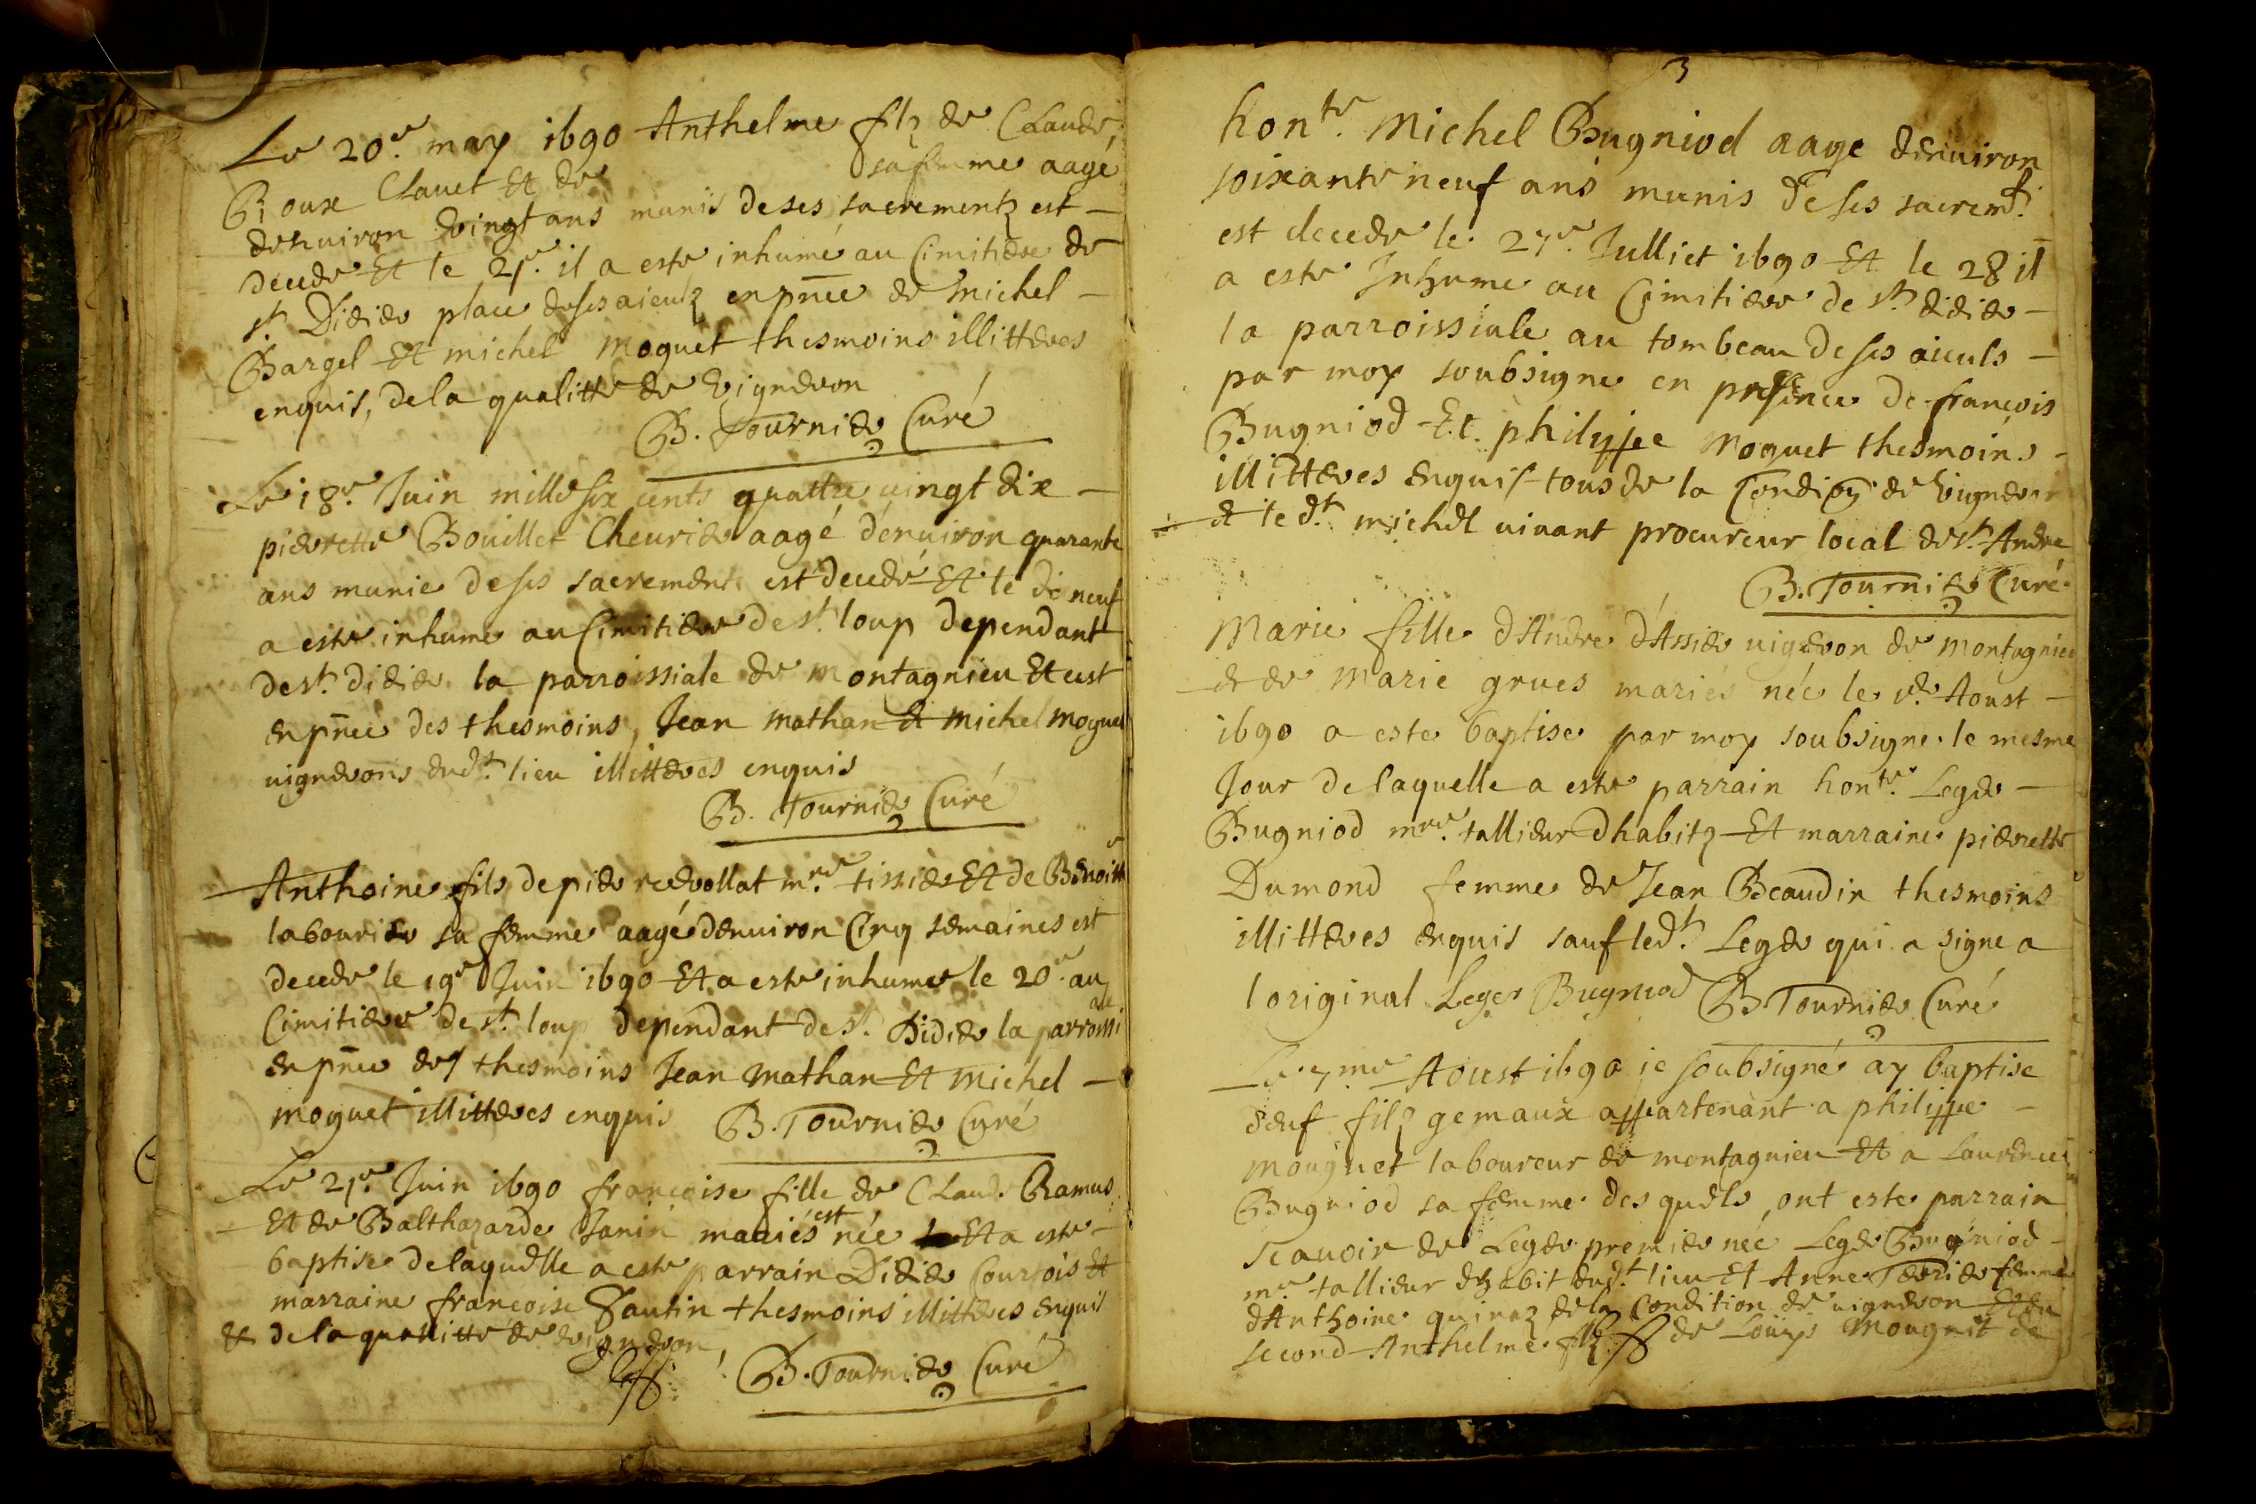 Le 20e. may 1690 Anthelme filz de Claude,
Roux Clauet Et de sa femme aagé
denuiron Vingt ans munis de ses sacrementz est
decede Et le 21e. il a este inhumé au Cimitiere de
st. Didier place de ses aieulz en pnce de Michel
Bargel Et michel moguet thesmoins illitteres
enquis, de la qualitté de Vigneron
B. Tournier Curé
Le 18e. Juin mille six cents quattre uingt dix
pierrette Bouillet Cheurier aagé denuiron quarante
ans munie de ses sacrements est decedé Et le dineuf
a este inhume au Cimitiere de st. loup dependant
de st. didier la parroissiale de montagnieu Et cest
en pnce des thesmoins, Jean mathan Et michel moguet
uignerons dudt. lieu illitteres enquis
B. Tournier Curé
Anthoine fils de pierre reuollat mre. tissier Et de Benoitte
labourier sa femme aagé denuiron Cinq semaines est
decede le 19e Juin 1690 Et a este inhume le 20e. au
Cimitiere de st. loup dependant de st. Didier la parroissiale
en pnce des thesmoins Jean mathan Et michel
moguet illitteres enquis B. Tournier Curé
Le 21e. Juin 1690 françoise fille de Claude Ramus
Et de Balthazarde Janin mariés est née Et a este
baptise de laquelle a este parrain Didier Courtois Et
marraine françoise Fautin thesmoins illitteres enquis
et de la qualitté de uigneron,
B. Tournier Curé
3
honte. Michel Bugniod aage denuiron
soixante neuf ans munis de ses sacremts.
est decede le 27e. Julliet 1690 Et le 28 il
a este Inhume au Cimitiere de st. didier
la parroissiale au tombeau de ses aieuls
par moy soubsigne en presence de françois
Bugniod Et philippe moguet thesmoins
illitteres enquis tous de la Condion de vigneron
et ledt. michel uiuant procureur local de st. Andre
B. Tournier Curé.
Marie fille dAndre dAssier uigneron de montagnieu
et de marie grues mariés née le Aoust
1690 a este baptise par moy soubsigne le mesme
Jour de laquelle a este parrain honte. Leger
Bugniod mre. tallieur dhabitz Et marraine pierrette
Dumond femme de Jean Beaudin thesmoins
illitteres enquis sauf ledt. Leger qui a signe a
loriginal Leger Bugniod B. Tournier Curé
Le 7me Aoust 1690 ie soubsigné ay baptise
deuf filz gemaux appartenant a philippe
mouguet laboureur de montagnieu Et a Laurence
Bugniod sa femme desquels ont este parrain
scauoir de Leger premier née Leger Bugniod
mre tallieur dhabit dudt. lieu Et Anne Terrier femme
dAnthoine quinaz de la Condition de uigneron Et du
second Anthelme filz de Louys Mouguet de